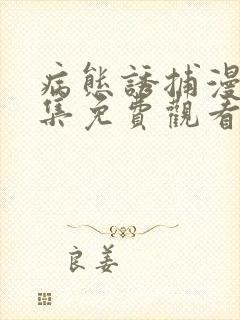 病態誘捕漫
集免費觀看
良姜